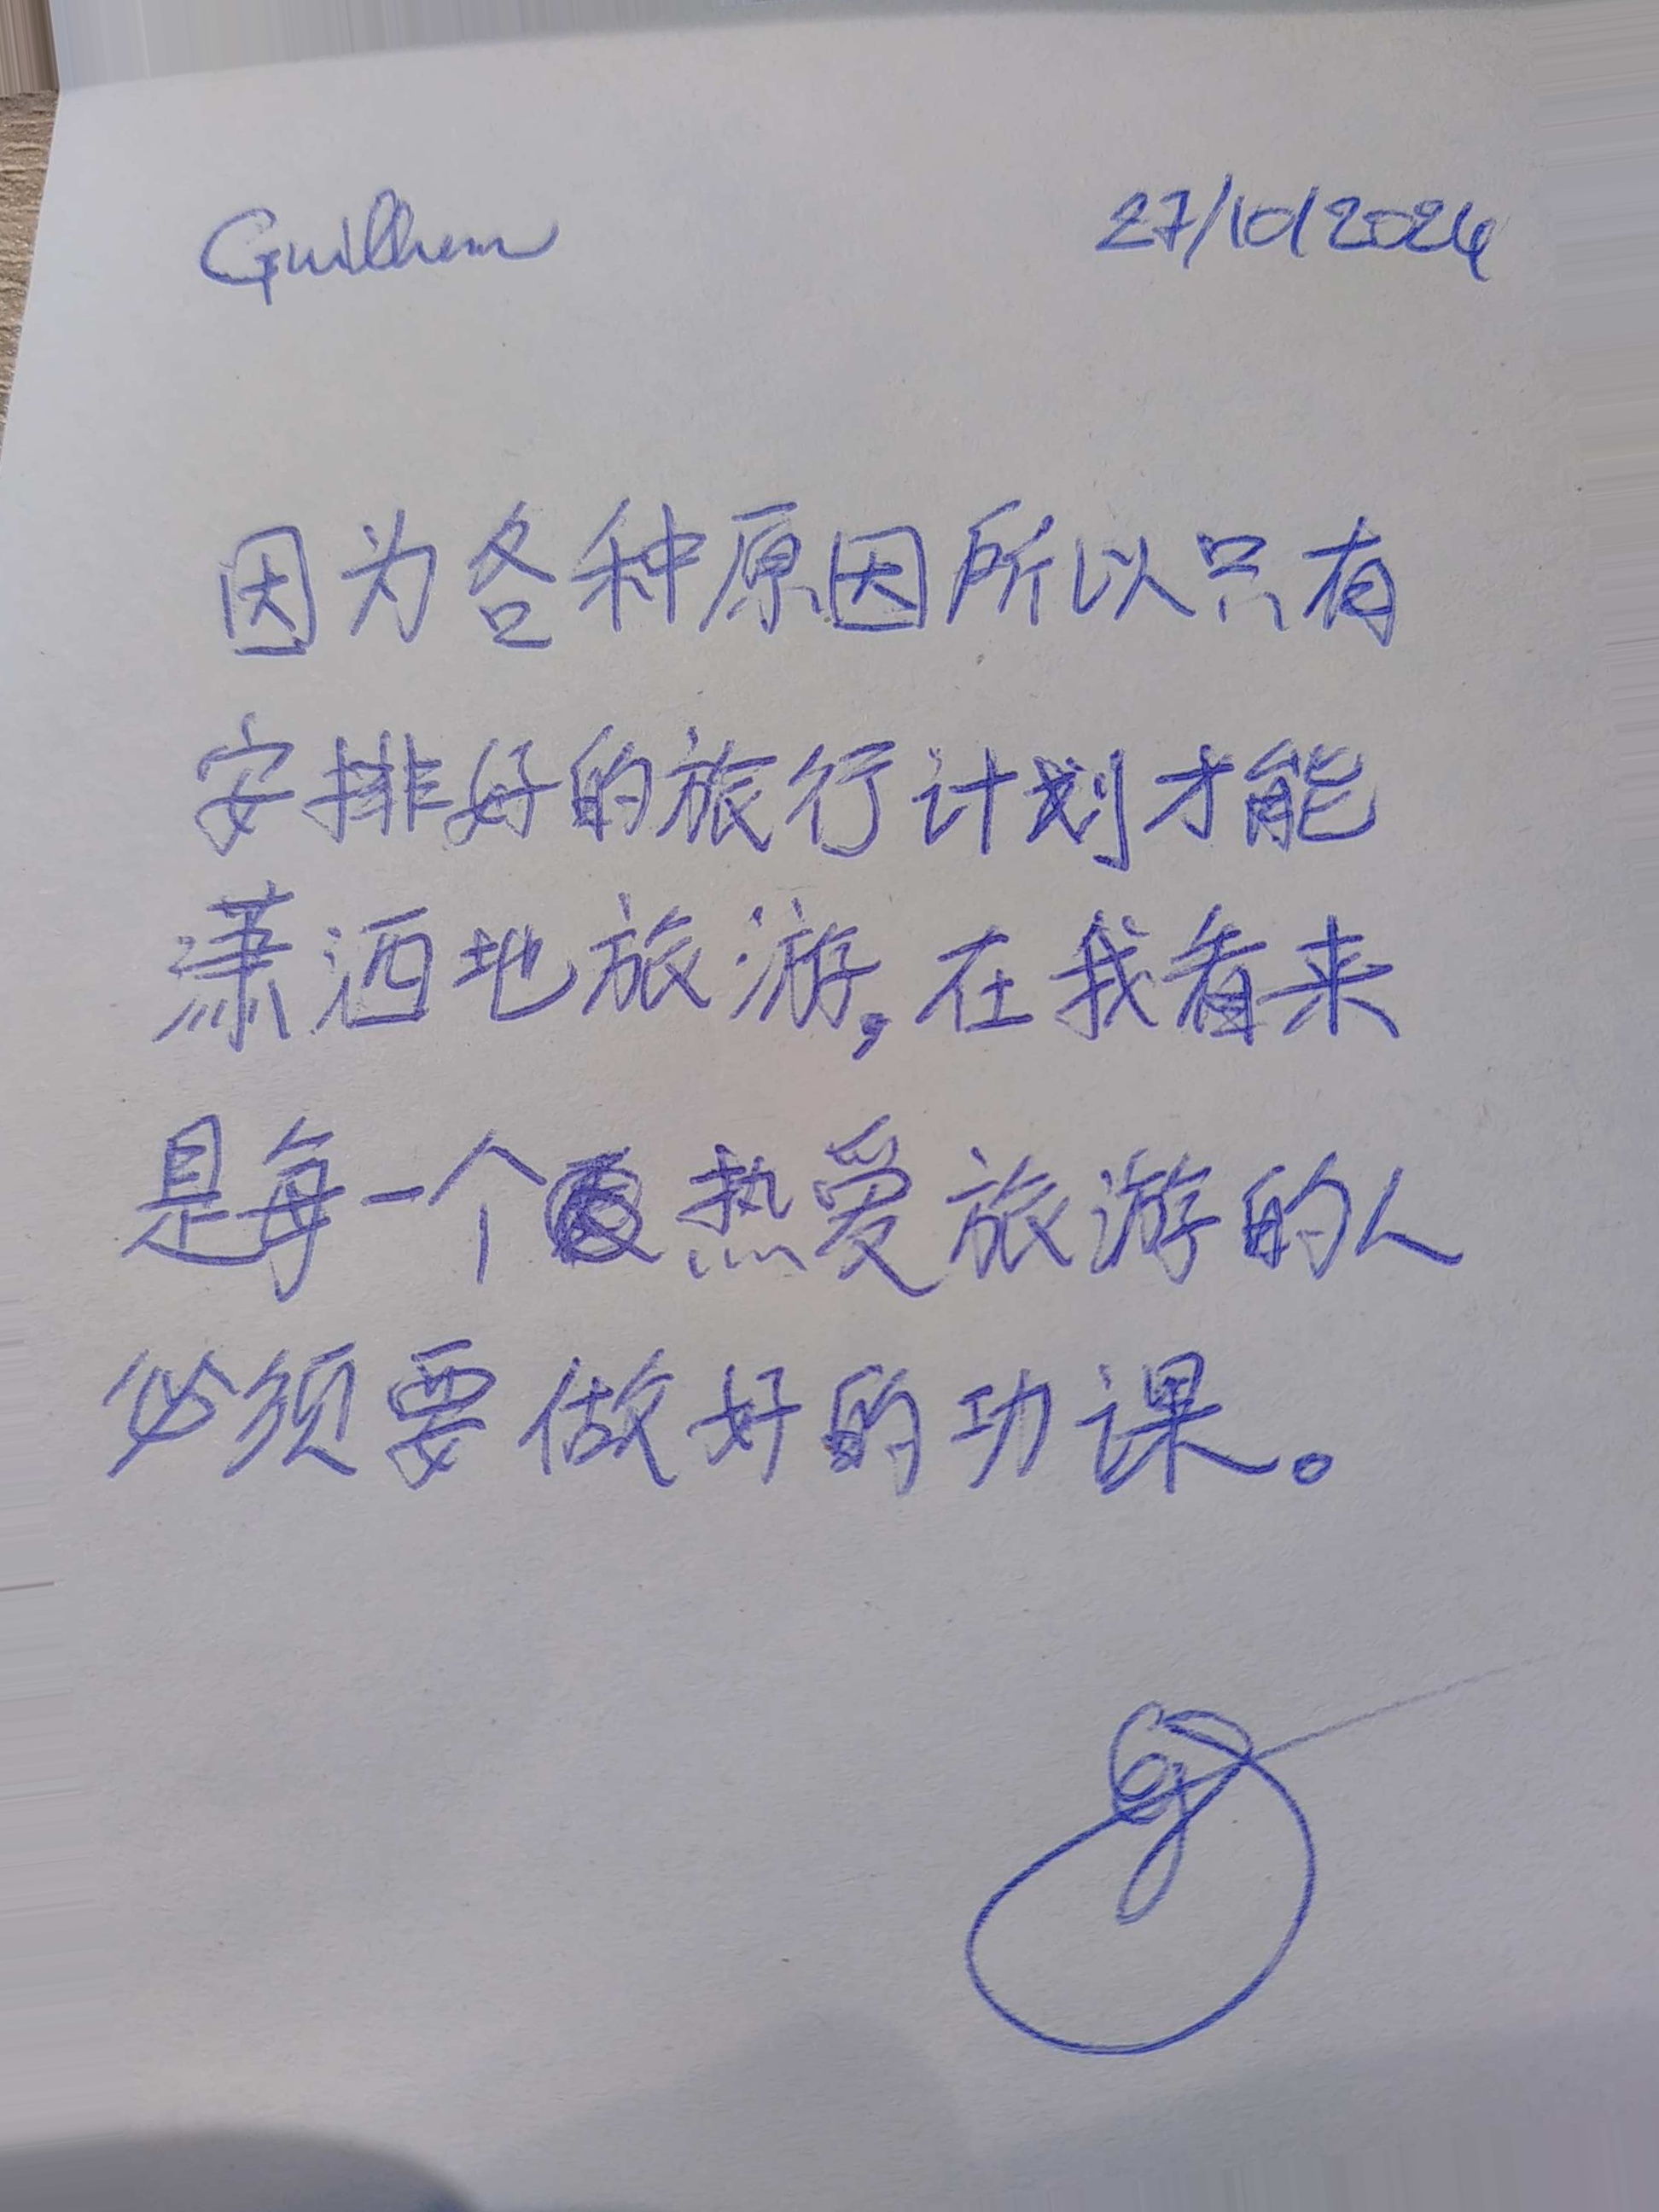 Guilhem 27/10/2024
因为各种原因所以只有
安排好的旅行计划才能
潇洒地旅游,在我看来
是每一个热爱旅游的人
必须要做好的功课。